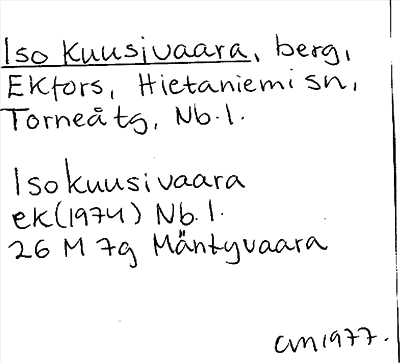 Iso Kuusivaara, berg,
Ekfors, Hietaniemi sn,
Torneå tg, Nb.l.
Isokuusivaara
ek(1974) Nb.l.
26 M 7g Mäntyvaara
CM1977.